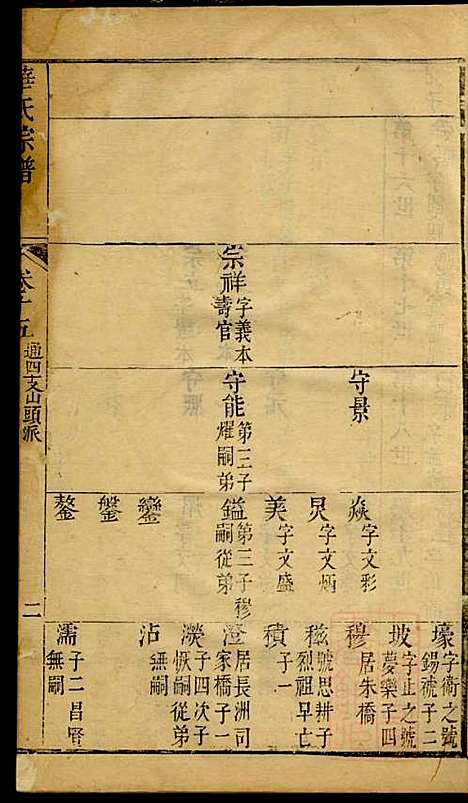 華氏宗譜
卷十五
通四支山頭派
二
宗祥 字義本 壽官
守景
守能 第三子 耀嗣弟
焱 字文彩
炅 字文炳
美 字文盛
鎰 第三子穆 嗣從弟
鑾
鎜
鏊
壕 字衛之號 錫號子二
坡 字止之號 慶樂子四
穆 居朱橋
磁 號思耕子 烈祖早亡
積 子一
澄 居長洲司 家橋子一
濙 子四次子 恢嗣從弟
沾 無嗣
濡 子二昌賢 無嗣